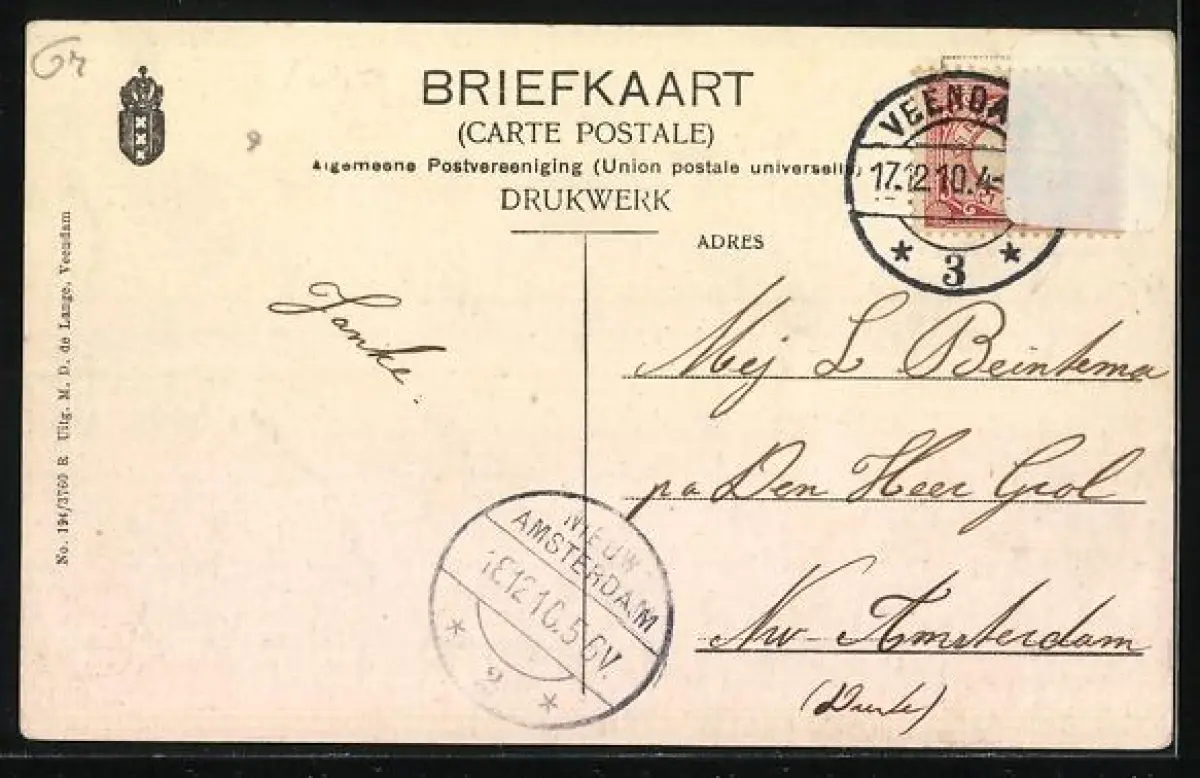 Gr
BRIEFKAART
(CARTE POSTALE)
Algemeene Postvereeniging (Union postale universelle)
DRUKWERK
ADRES
VEENDA
17.12.10.4-
3
No. 194/3760 R Uitg. M. D. de Lange, Veendam
Janke
Mej L Beintema
pa Den Heer Grol
Nw-Amsterdam
NIEUW
AMSTERDAM
18.12.10.5-6V.
2